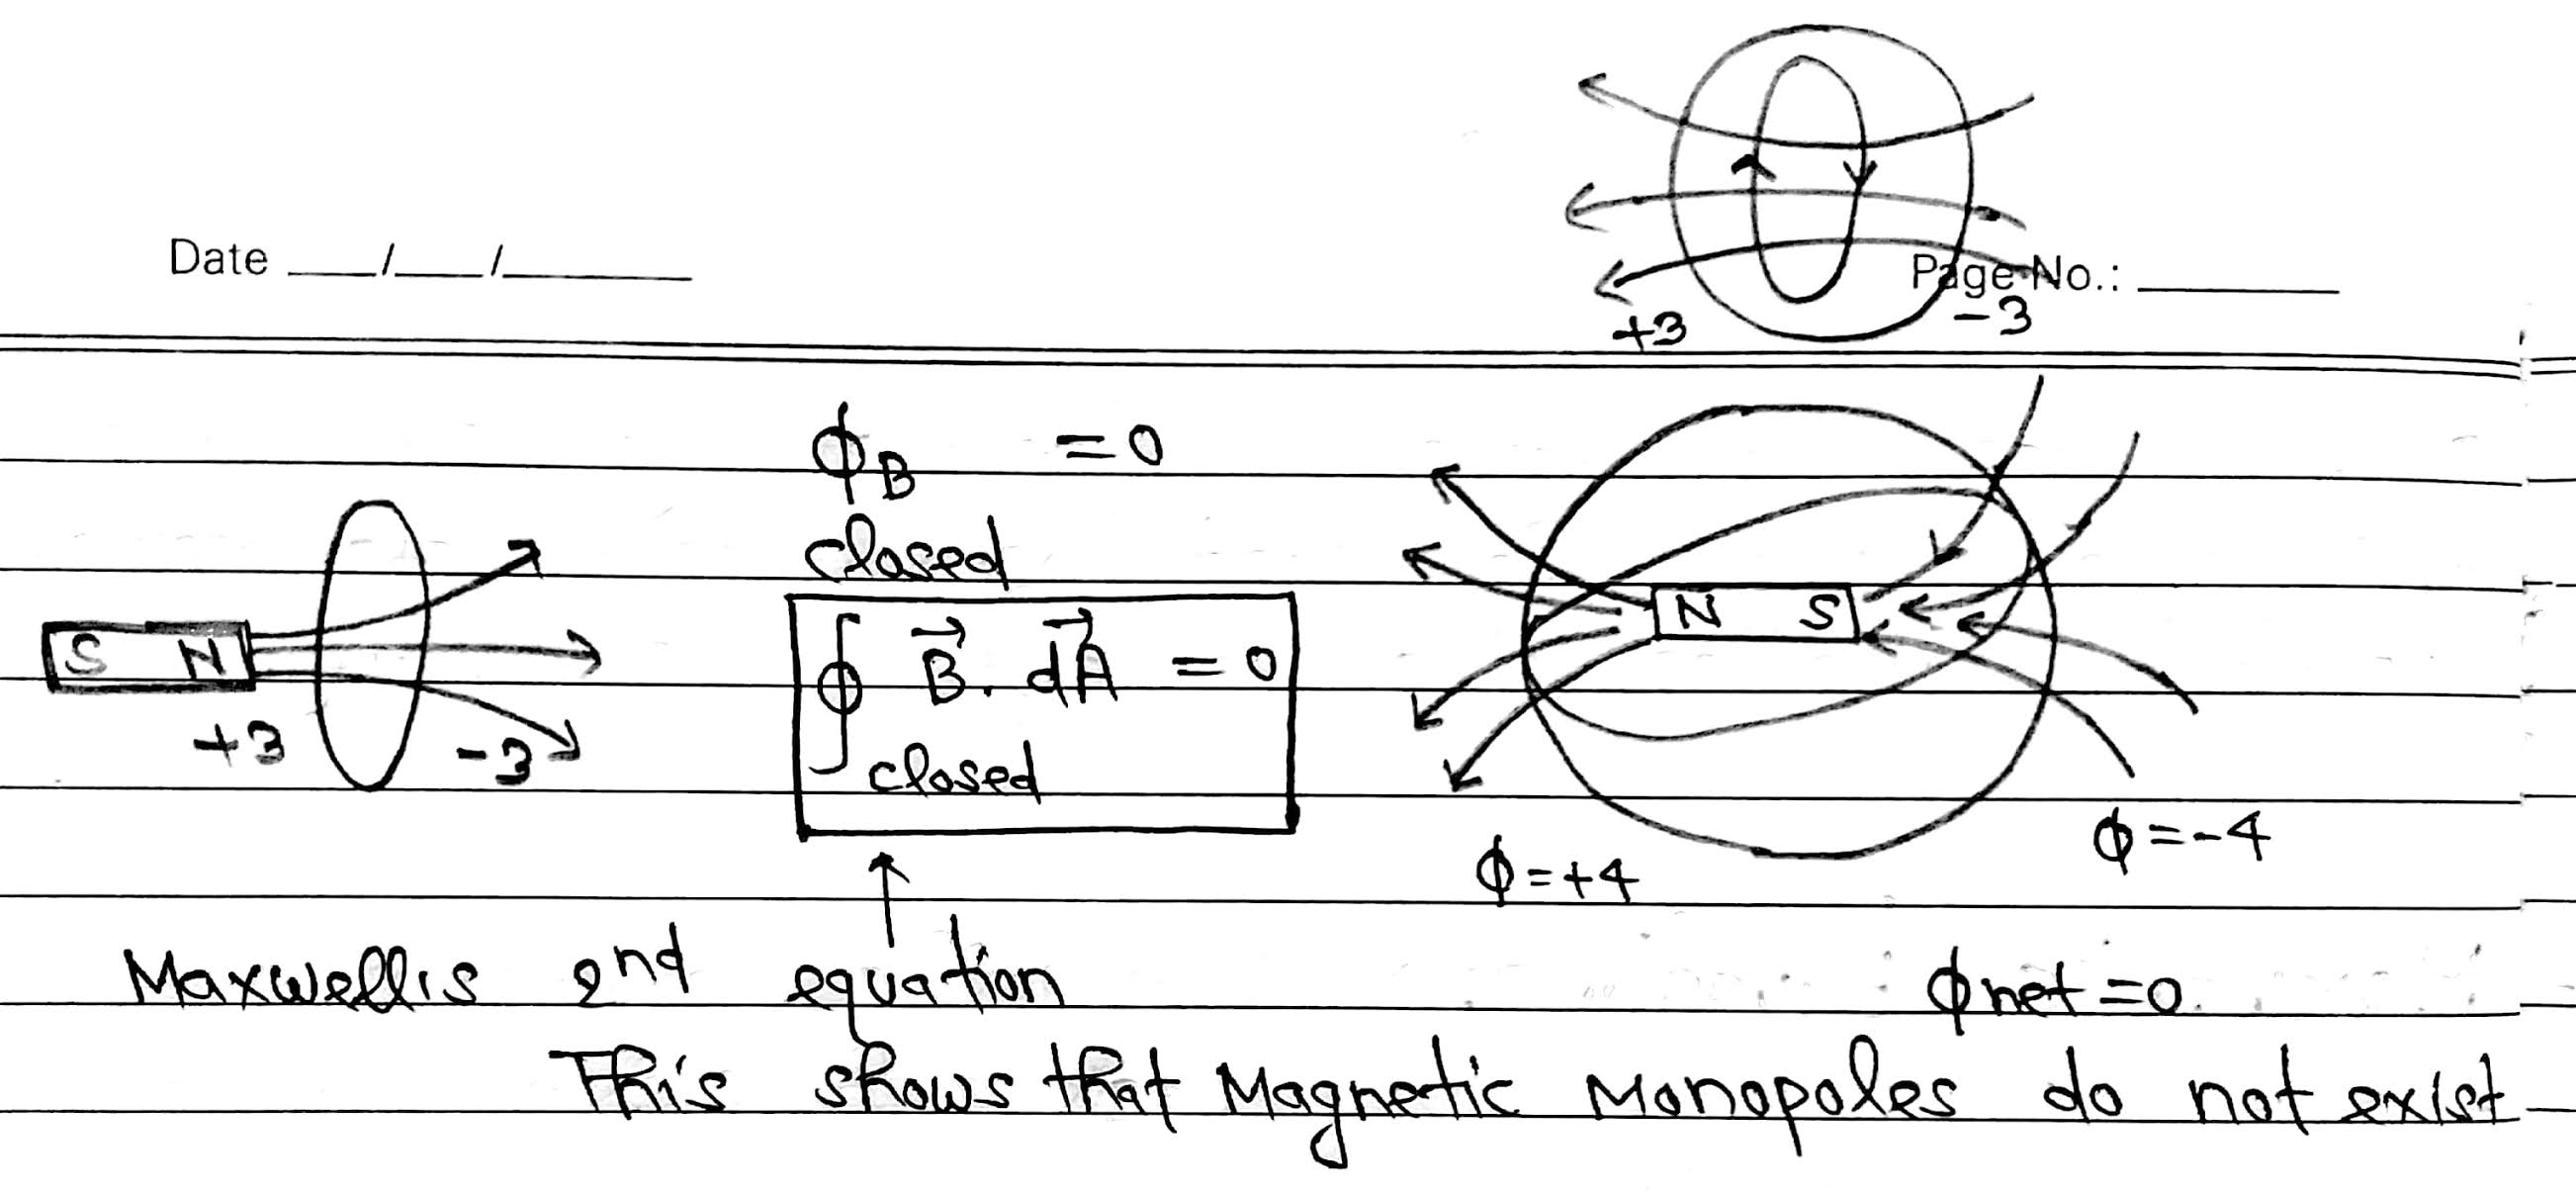 Date ___/___/______
Page No.: ______
+3 -3
ϕB = 0
closed
S N
+3 -3
∮ B⃗ . dA⃗ = 0
closed
N S
ϕ = +4
ϕ = -4
Maxwell's 2nd equation
ϕnet = 0
This shows that Magnetic Monopoles do not exist